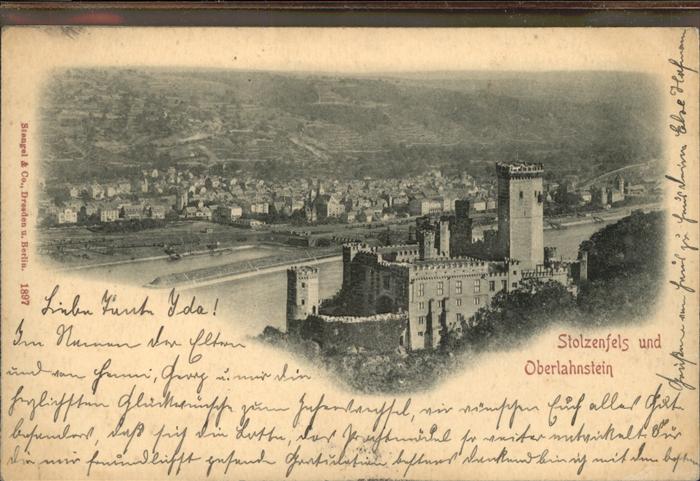 Stengel & Co., Dresden u. Berlin. 1897
Stolzenfels und
Oberlahnstein
Liebe Tante Ida!
Im Namen der Eltern
und von Henni, Georg u. mir die
herzlichsten Glückwünsche zum Jahreswechsel, wir wünschen Euch alles Gute
besonders, daß sich die Lotte, das Prachtmädel so weiter entwickelt. Für
die mir freundlichst gesandte Gratulation bestens dankend bin ich mit den besten
Grüßen von Haus zu Haus Deine Else Hofmann